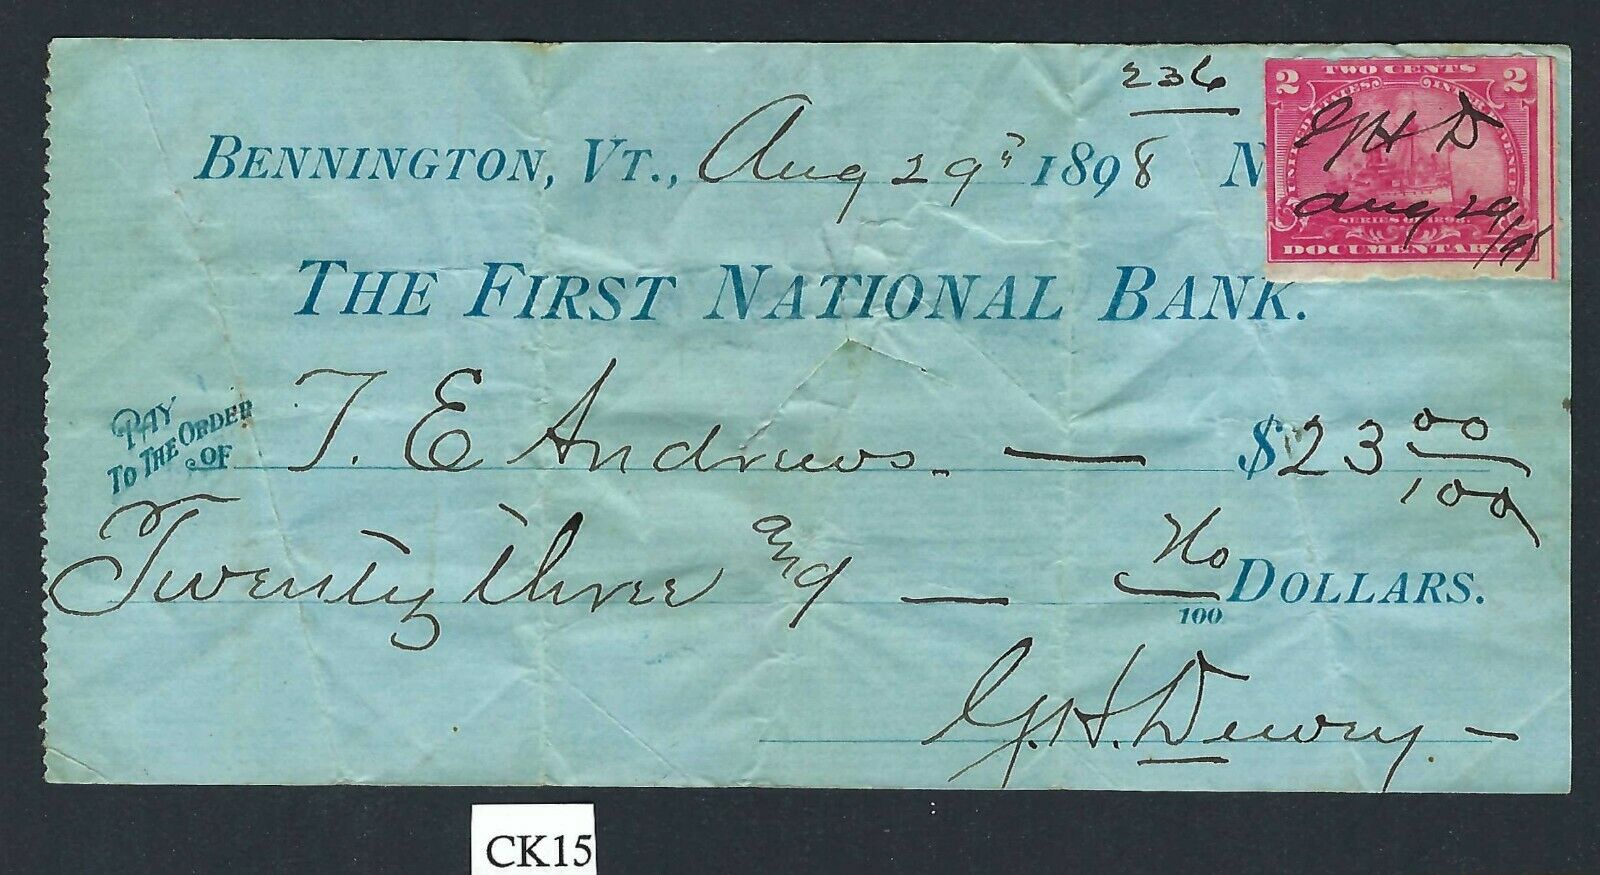 236
BENNINGTON, VT., Aug 29" 1898 N
THE FIRST NATIONAL BANK.
2 TWO CENTS 2
UNITED STATES INTER REVENUE
SERIES OF 1898.
DOCUMENTAR
G H D
Aug 29/98
PAY TO THE ORDER OF T. E Andrews. — $23 00/100
Twenty three and — No/100 DOLLARS.
G. H. Dewey —
CK15